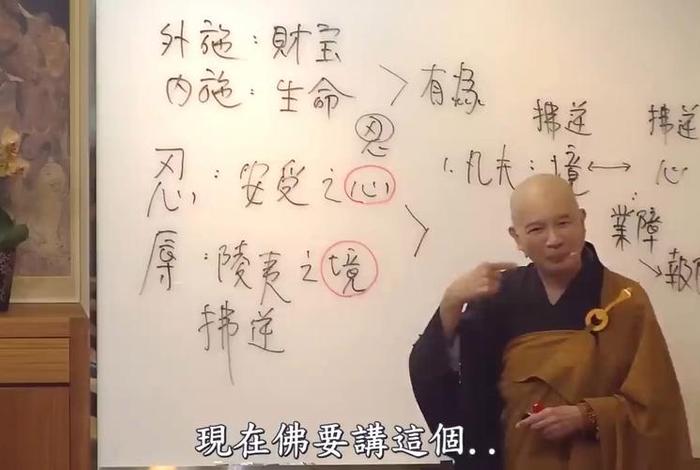 外施：財宝
内施：生命
有
忍
忍：安受之心
辱：陵夷之境
拂逆
拂逆 拂逆
1.凡夫：境 ↔ 心
業障
→報
現在佛要講這個..